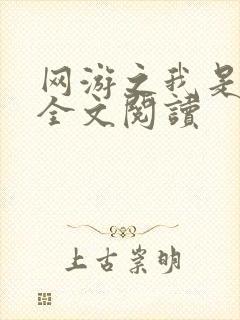 网游之我是
全文閱讀
上古崇明